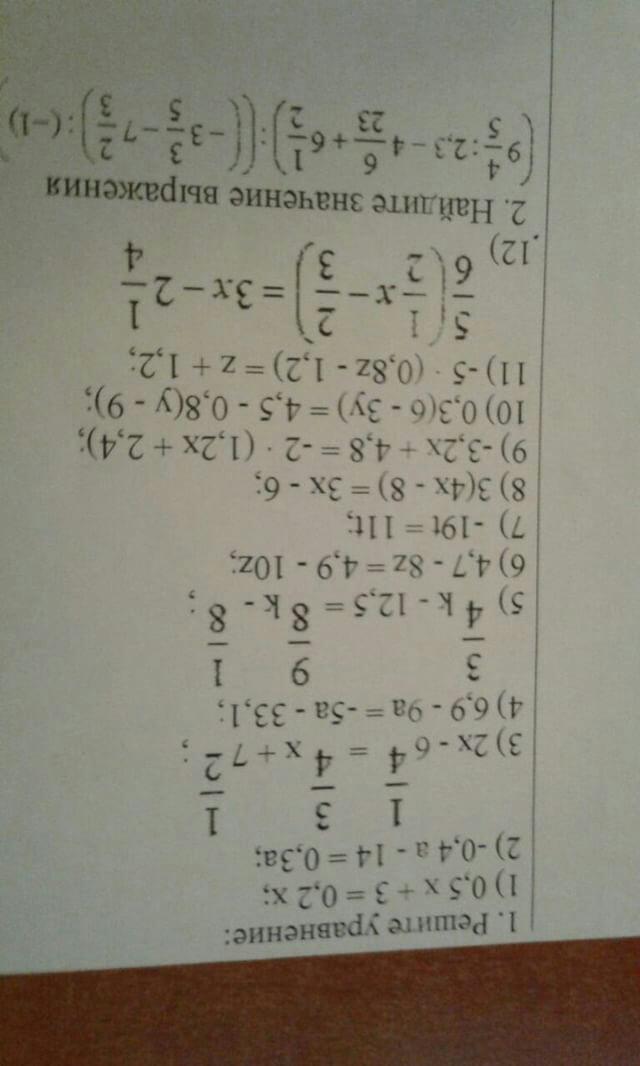 1. Решите уравнение:
1) 0,5 x + 3 = 0,2 x;
2) -0,4 a - 14 = 0,3a;
3) 2x - 6 1/4 = 3/4 x + 7 1/2 ;
4) 6,9 - 9a = -5a - 33,1;
5) 3/4 k - 12,5 = 9/8 k - 1/8 ;
6) 4,7 - 8z = 4,9 - 10z;
7) -19t = 11t;
8) 3(4x - 8) = 3x - 6;
9) -3,2x + 4,8 = -2 · (1,2x + 2,4);
10) 0,3(6 - 3y) = 4,5 - 0,8(y - 9);
11) -5 · (0,8z - 1,2) = z + 1,2;
12) 5/6 (1/2 x - 2/3) = 3x - 2 1/4
2. Найдите значение выражения
(9 4/5 : 2,3 - 4 6/23 + 6 1/2) : ((-3 3/5 - 7 2/3) : (-1)